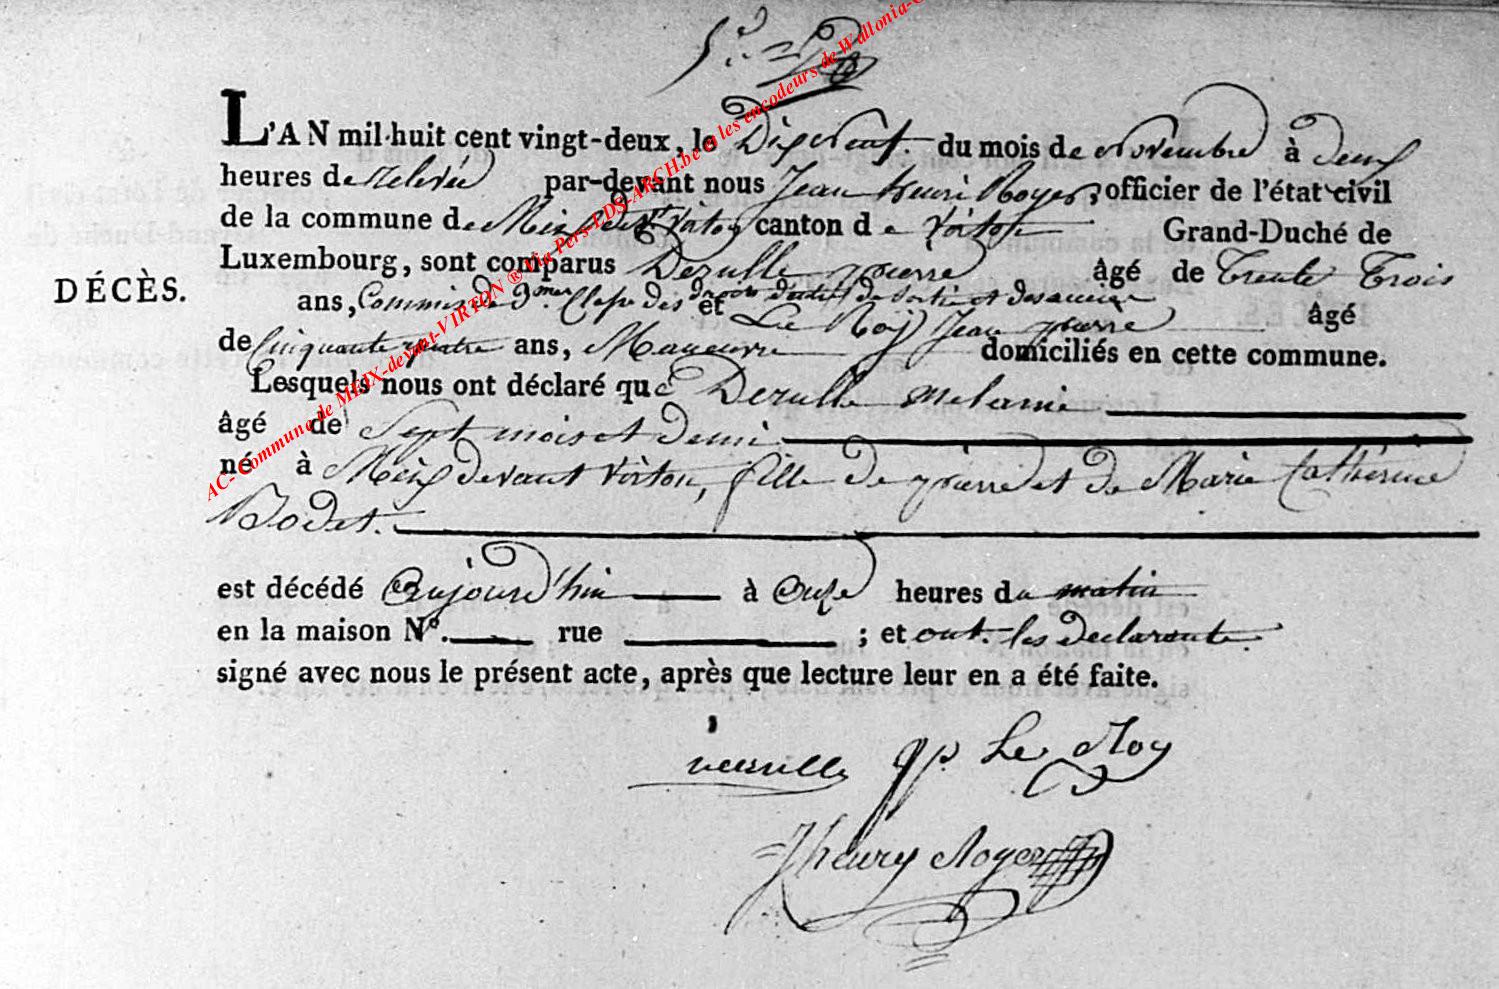 L'AN mil-huit cent vingt-deux, le Dixneuf. du mois de Novembre à deux
heures de relevée par-devant nous Jean henri Royer, officier de l'état civil
de la commune de Meix devt Virton canton de Virton Grand-Duché de
Luxembourg, sont comparus Dezulle pierre âgé de Trente Trois
DÉCÈS.
ans, Commis de 3me Classe des droits d'entrée de Sortie et des accises et Le Roÿ Jean pierre âgé
de Cinquante quatre ans, Maneuvre domiciliés en cette commune.
Lesquels nous ont déclaré que Dezulle melanie
âgé de Sept mois et demi
né à Meix devant Virton, fille de pierre et de Marie Catherine
Bodet.
est décédé Aujourd'hui à onze heures du matin
en la maison N°. rue ; et ont les declarants
signé avec nous le présent acte, après que lecture leur en a été faite.
jp. Le Roy
Jhenry Royer
AC- Commune de MEIX-devant-VIRTON ® Via Pers-LDS-ARCH.be & les encodeurs de Wallonia-